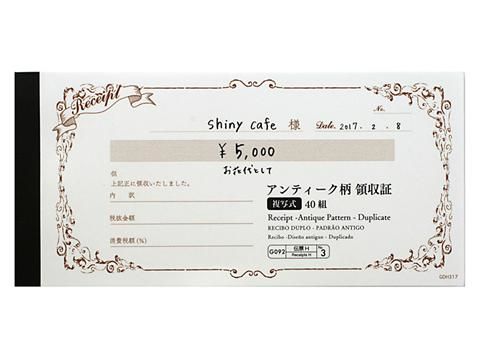 Receipt
No.
shiny cafe 様 Date. 2017. 2. 8
¥5,000
お花代として
但
上記正に領収いたしました。
内 訳
税抜金額
消費税額(%)
アンティーク柄 領収証
複写式 40組
Receipt -Antique Pattern - Duplicate
RECIBO DUPLO - PADRÃO ANTIGO
Recibo -Diseño antiguo - Duplicado
G092 伝票 H Receipts H No 3
GDH317